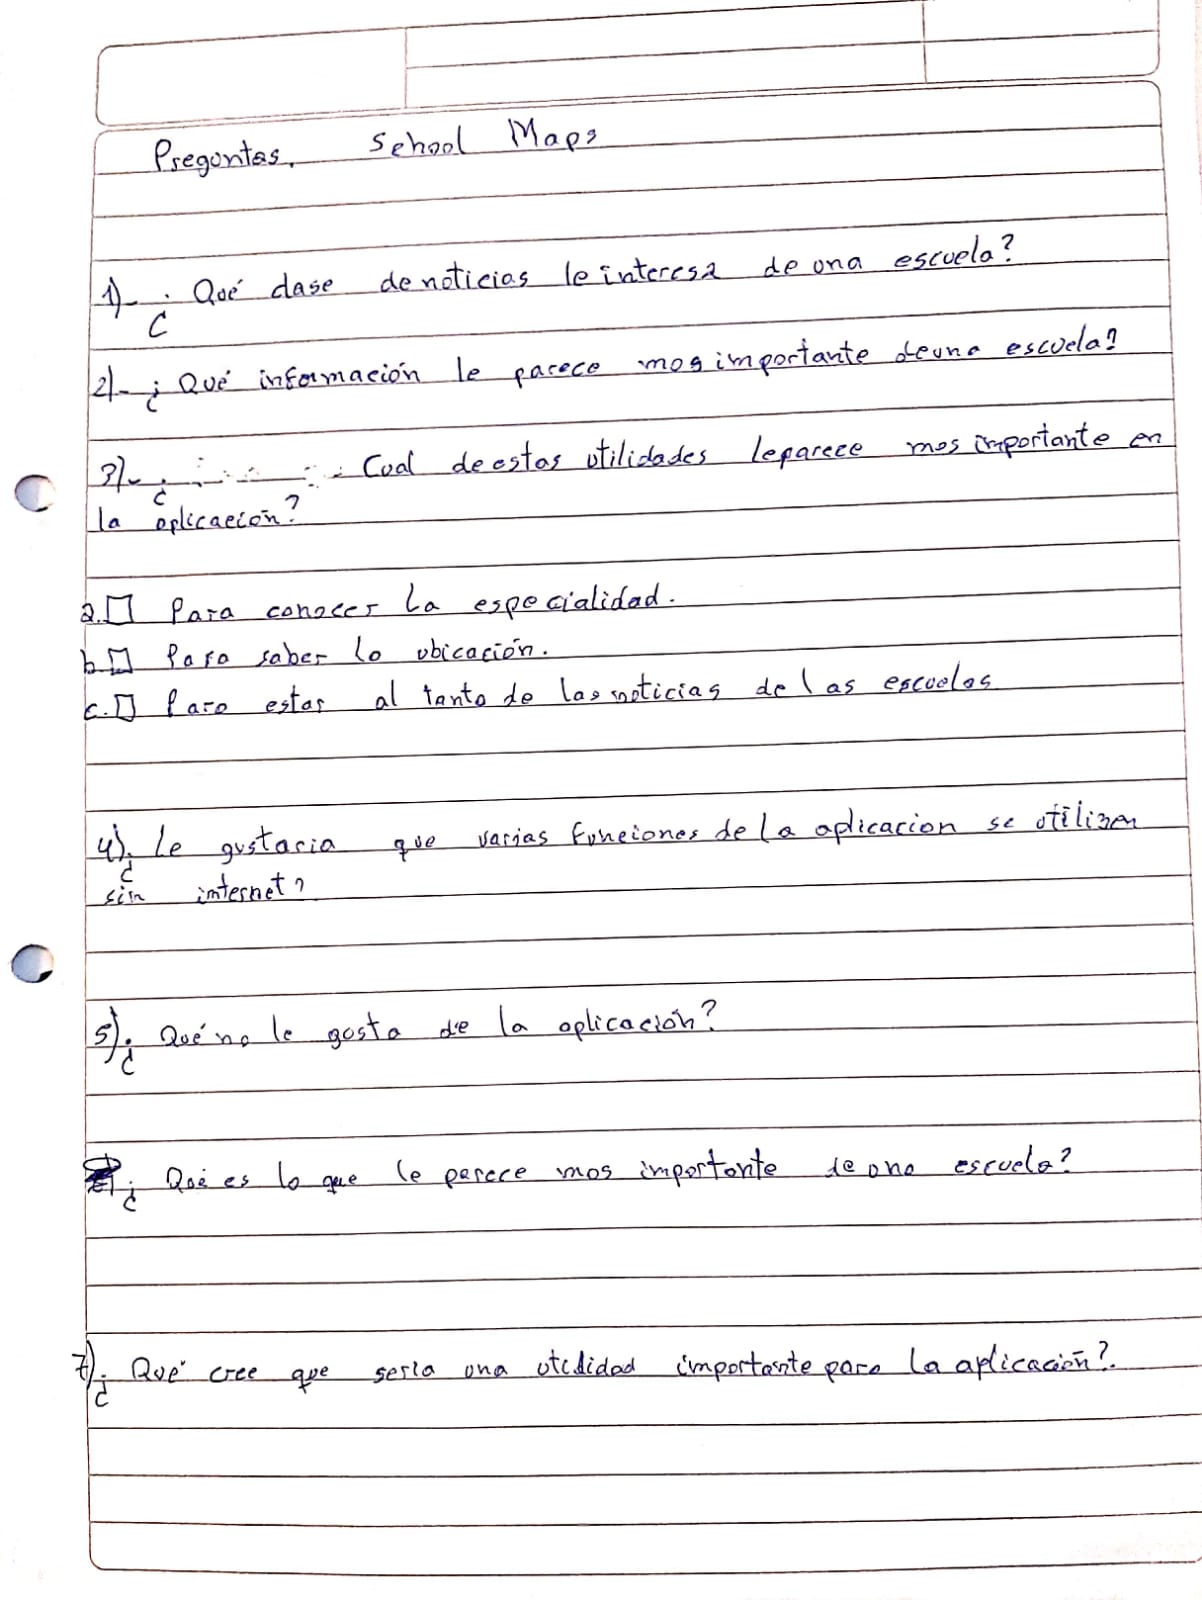 Preguntas. School Maps
1)- ¿Qué clase de noticias le interesa de una escuela?
2)- ¿Qué información le parece mas importante de una escuela?
3)- ¿ Cual de estas utilidades le parece mas importante en
la aplicación?
a. □ Para conocer la especialidad.
b. □ Para saber la ubicación.
c. □ Para estar al tanto de las noticias de las escuelas
4). ¿Le gustaria que varias funciones de la aplicacion se utilizen
sin internet?
5). ¿Qué no le gusta de la aplicación?
¿Qué es lo que le parece mas importante de una escuela?
7). ¿Qué cree que seria una utilidad importante para la aplicación?.